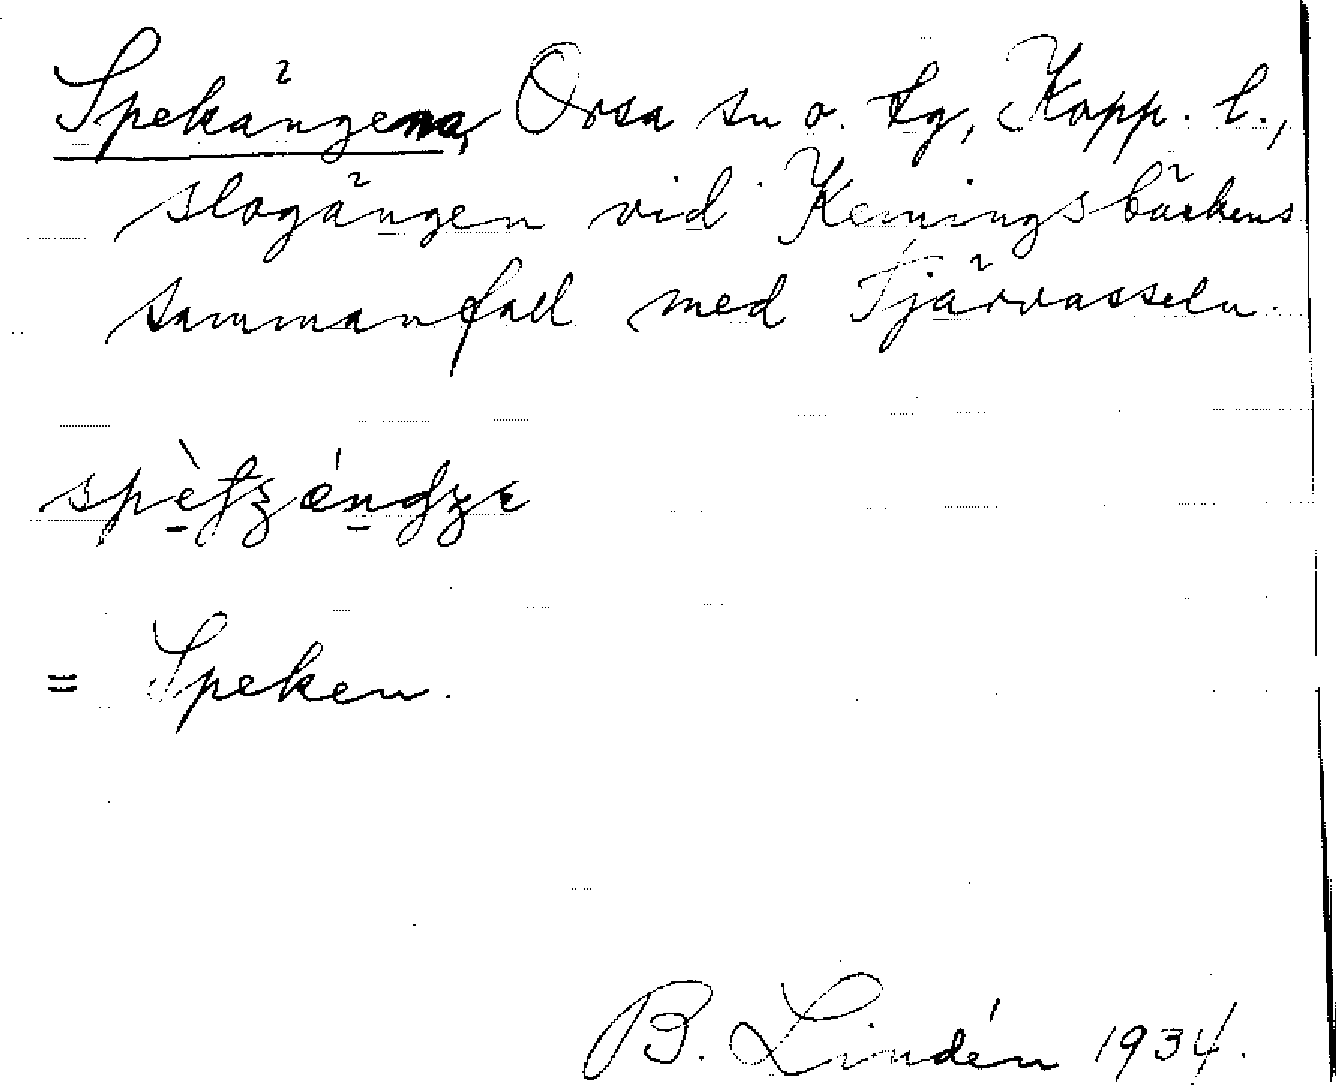 Spekängena, Orsa sn o. tg, Kopp. l.,
slogängen vid Keningsbäckens
sammanfall med Fjärvasseln.
= Speken.
B. Lindén 1934.